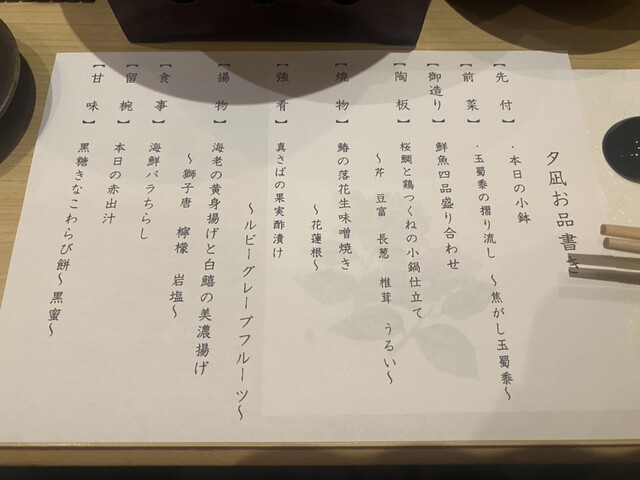 夕凪お品書き
【先付】
・本日の小鉢
【前菜】
・玉蜀黍の摺り流し ～焦がし玉蜀黍～
【御造り】
鮮魚四品盛り合わせ
【陶板】
桜鯛と鶏つくねの小鍋仕立て
～芹 豆富 長葱 椎茸 うるい～
【燒物】
鰆の落花生味噌焼き
～花蓮根～
【強肴】
真さばの果実酢漬け
～ルビーグレープフルーツ～
【揚物】
海老の黄身揚げと白鱚の美濃揚げ
～獅子唐 檸檬 岩塩～
【食事】
海鮮バラちらし
【留椀】
本日の赤出汁
【甘味】
黒糖きなこわらび餅～黒蜜～